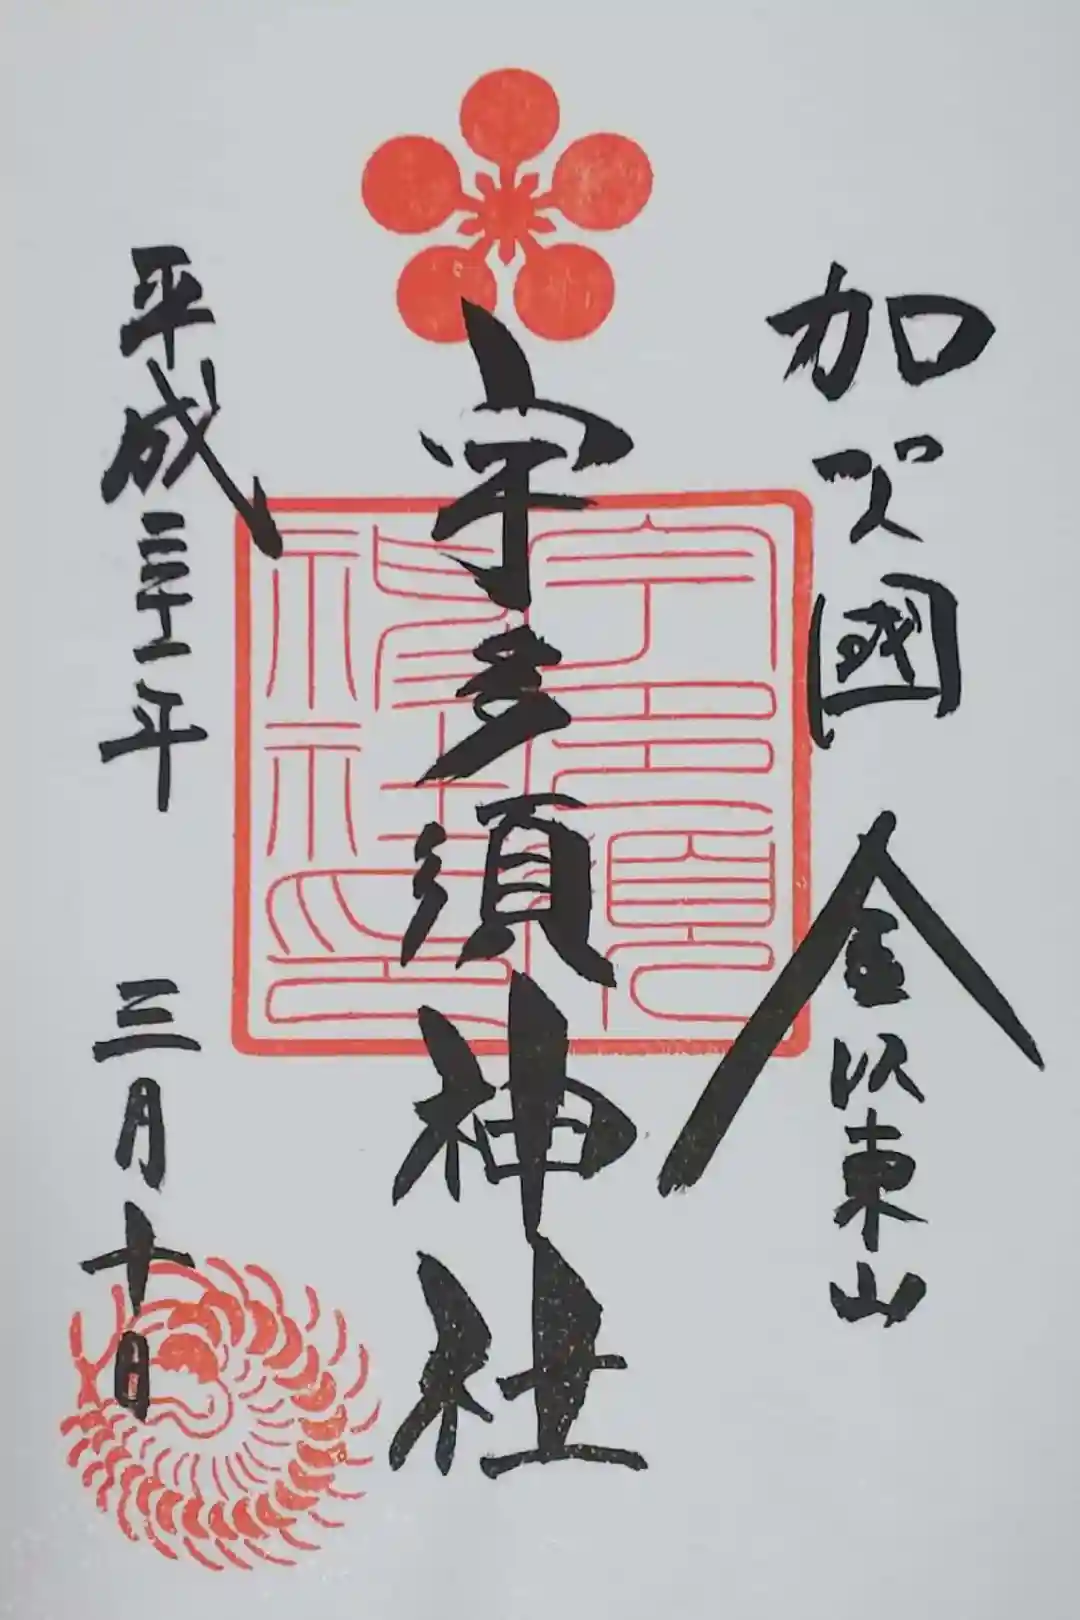 加賀國 金沢東山
宇多須神社
平成三十一年 三月十日
宇多須
神社印